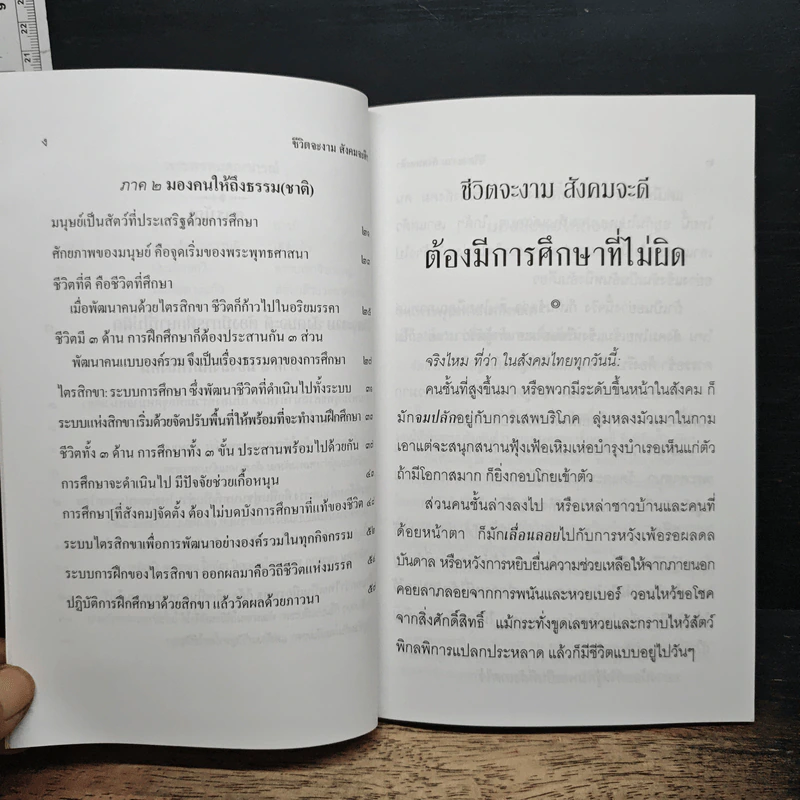 ง
ชีวิตจะงาม สังคมจะดี
ภาค ๒ มองคนให้ถึงธรรม(ชาติ)
มนุษย์เป็นสัตว์ที่ประเสริฐด้วยการศึกษา
ศักยภาพของมนุษย์ คือจุดเริ่มของพระพุทธศาสนา
ชีวิตที่ดี คือชีวิตที่ศึกษา
เมื่อพัฒนาคนด้วยไตรสิกขา ชีวิตก็ก้าวไปในอริยมรรคา
ชีวิตมี ๓ ด้าน การฝึกศึกษาก็ต้องประสานกัน ๓ ส่วน
พัฒนาคนแบบองค์รวม จึงเป็นเรื่องธรรมดาของการศึกษา
ไตรสิกขา: ระบบการศึกษา ซึ่งพัฒนาชีวิตที่ดำเนินไปทั้งระบบ
ระบบแห่งสิกขา เริ่มด้วยจัดปรับพื้นที่ให้พร้อมที่จะทำงานฝึกศึกษา
ชีวิตทั้ง ๓ ด้าน การศึกษาทั้ง ๓ ขั้น ประสานพร้อมไปด้วยกัน
การศึกษาจะดำเนินไป มีปัจจัยช่วยเกื้อหนุน
การศึกษา[ที่สังคม]จัดตั้ง ต้องไม่บดบังการศึกษาที่แท้ของชีวิต
ระบบไตรสิกขาเพื่อการพัฒนาอย่างองค์รวมในทุกกิจกรรม
ระบบการฝึกของไตรสิกขา ออกผลมาคือวิถีชีวิตแห่งมรรค
ปฏิบัติการฝึกศึกษาด้วยสิกขา แล้ววัดผลด้วยภาวนา
ชีวิตจะงาม สังคมจะดี
ต้องมีการศึกษาที่ไม่ผิด
จริงไหม ที่ว่า ในสังคมไทยทุกวันนี้:
คนชั้นที่สูงขึ้นมา หรือพวกมีระดับขึ้นหน้าในสังคม ก็
มักจมปลักอยู่กับการเสพบริโภค ลุ่มหลงมัวเมาในกาม
เอาแต่จะสนุกสนานฟุ้งเฟ้อเหิมเห่อบำรุงบำเรอเห็นแก่ตัว
ถ้ามีโอกาสมาก ก็ยิ่งกอบโกยเข้าตัว
ส่วนคนชั้นล่างลงไป หรือเหล่าชาวบ้านและคนที่
ด้อยหน้าตา ก็มักเลื่อนลอยไปกับการหวังเพ้อรอผลดล
บันดาล หรือหวังการหยิบยื่นความช่วยเหลือให้จากภายนอก
คอยลาภลอยจากการพนันและหวยเบอร์ วอนไหว้ขอโชค
จากสิ่งศักดิ์สิทธิ์ แม้กระทั่งขูดเลขหวยและกราบไหว้สัตว์
พิกลพิการแปลกประหลาด แล้วก็มีชีวิตแบบอยู่ไปวันๆ